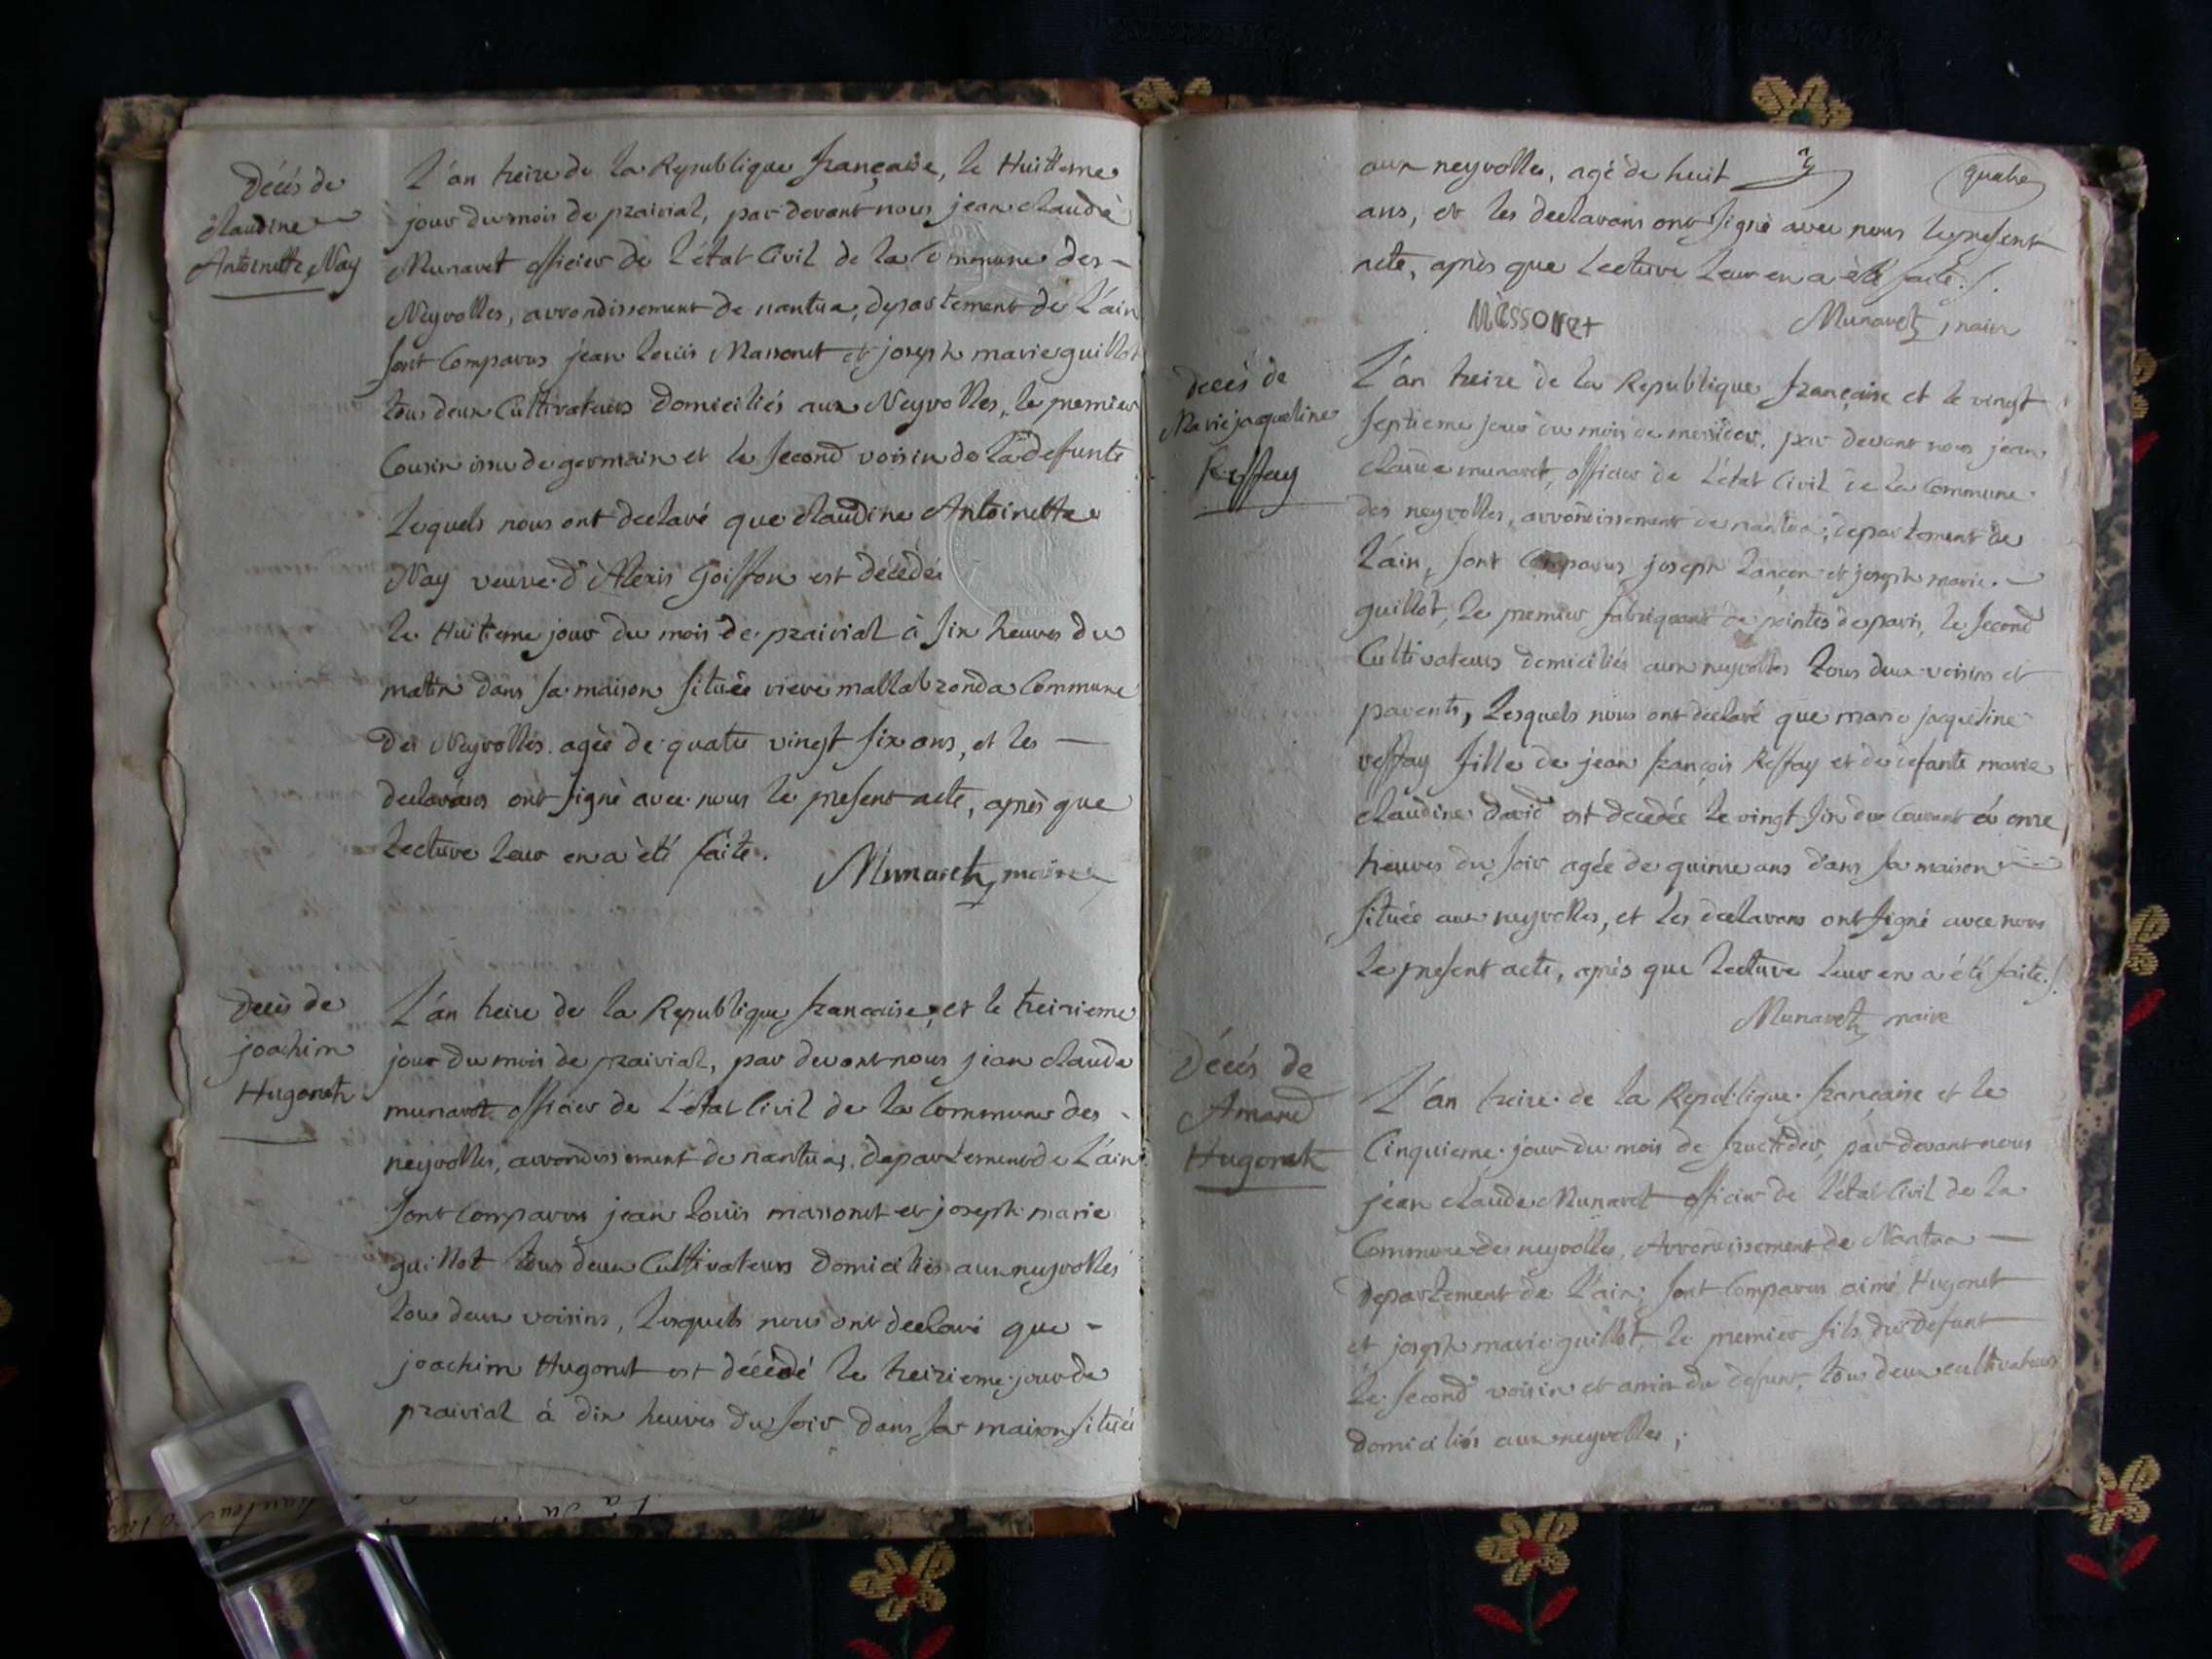 Décès de
Claudine
Antoinette Nay
L'an treize de la Republique française, le Huitieme
jour du mois de prairial, par devant nous jean Claude
Munaret officier de l'état Civil de la Commune des
Neyrolles, arrondissement de nantua, departement de l'ain
sont Comparus jean louis Massonet et joseph marie guillot
tous deux Cultivateurs domiciliés aux Neyrolles, le premier
Cousin issu de germain et le second voisin de la defunte
Lequels nous ont declaré que Claudine Antoinette
Nay veuve d'Alexis Goiffon est décedée
le Huitieme jour du mois de prairial à six heures du
matin dans sa maison située
Commune
des Neyrolles. agée de quatre vingt six ans, et les
declarans ont signé avec nous le present acte, après que
lecture leur en a été faite.
Munaret, maire
Decès de
joachim
Hugonet
L'an treize de la Republique francaise, et le treizieme
jour du mois de prairial, par devant nous jean claude
munaret officier de l'état Civil de la Commune des
neyrolles, arrondissement de nantua, departement de l'ain
sont comparus jean louis massonet et joseph marie
guillot tous deux Cultivateurs domiciliés aux neyrolles
tous deux voisins, lesquels nous ont declaré que
joachim Hugonet est décédé le treizieme jour de
prairial à dix heures du soir dans sa maison située
quatre
aux neyrolles, agé de huit
ans, et les declarans ont signé avec nous le present
acte, après que lecture leur en a été faite.
Massonet
Munaret, maire
Decès de
Marie jaqueline
Reffay
L'an treize de la Republique française et le vingt
septieme jour du mois de messidor, par devant nous jean
claude munaret, officier de l'état Civil de la Commune
des neyrolles, arrondissement de nantua, departement de
l'ain, sont Comparus joseph lançon et joseph marie
guillot, le premier fabriquant de pointes de paris, le second
Cultivateurs domiciliés aux neyrolles tous deux voisins et
parents, lesquels nous ont declaré que marie jaqueline
reffay fille de jean françois Reffay et de defunte marie
claudine david est decedée le vingt six du courant à onze
heures du soir agée de quinze ans dans sa maison
située aux neyrolles, et les declarans ont signé avec nous
le present acte, après que lecture leur en a été faite.
Munaret maire
Décès de
Amand
Hugonet
L'an treize de la Republique francaise et le
Cinquieme jour du mois de fructidor, par devant nous
jean claude Munaret officier de l'état Civil de la
Commune des neyrolles, Arrondissement de Nantua
departement de l'ain; sont Comparus aimé Hugonet
et joseph marie guillot, le premier fils du defunt
le second voisin et ami du defunt, tous deux cultivateurs
domiciliés aux neyrolles;